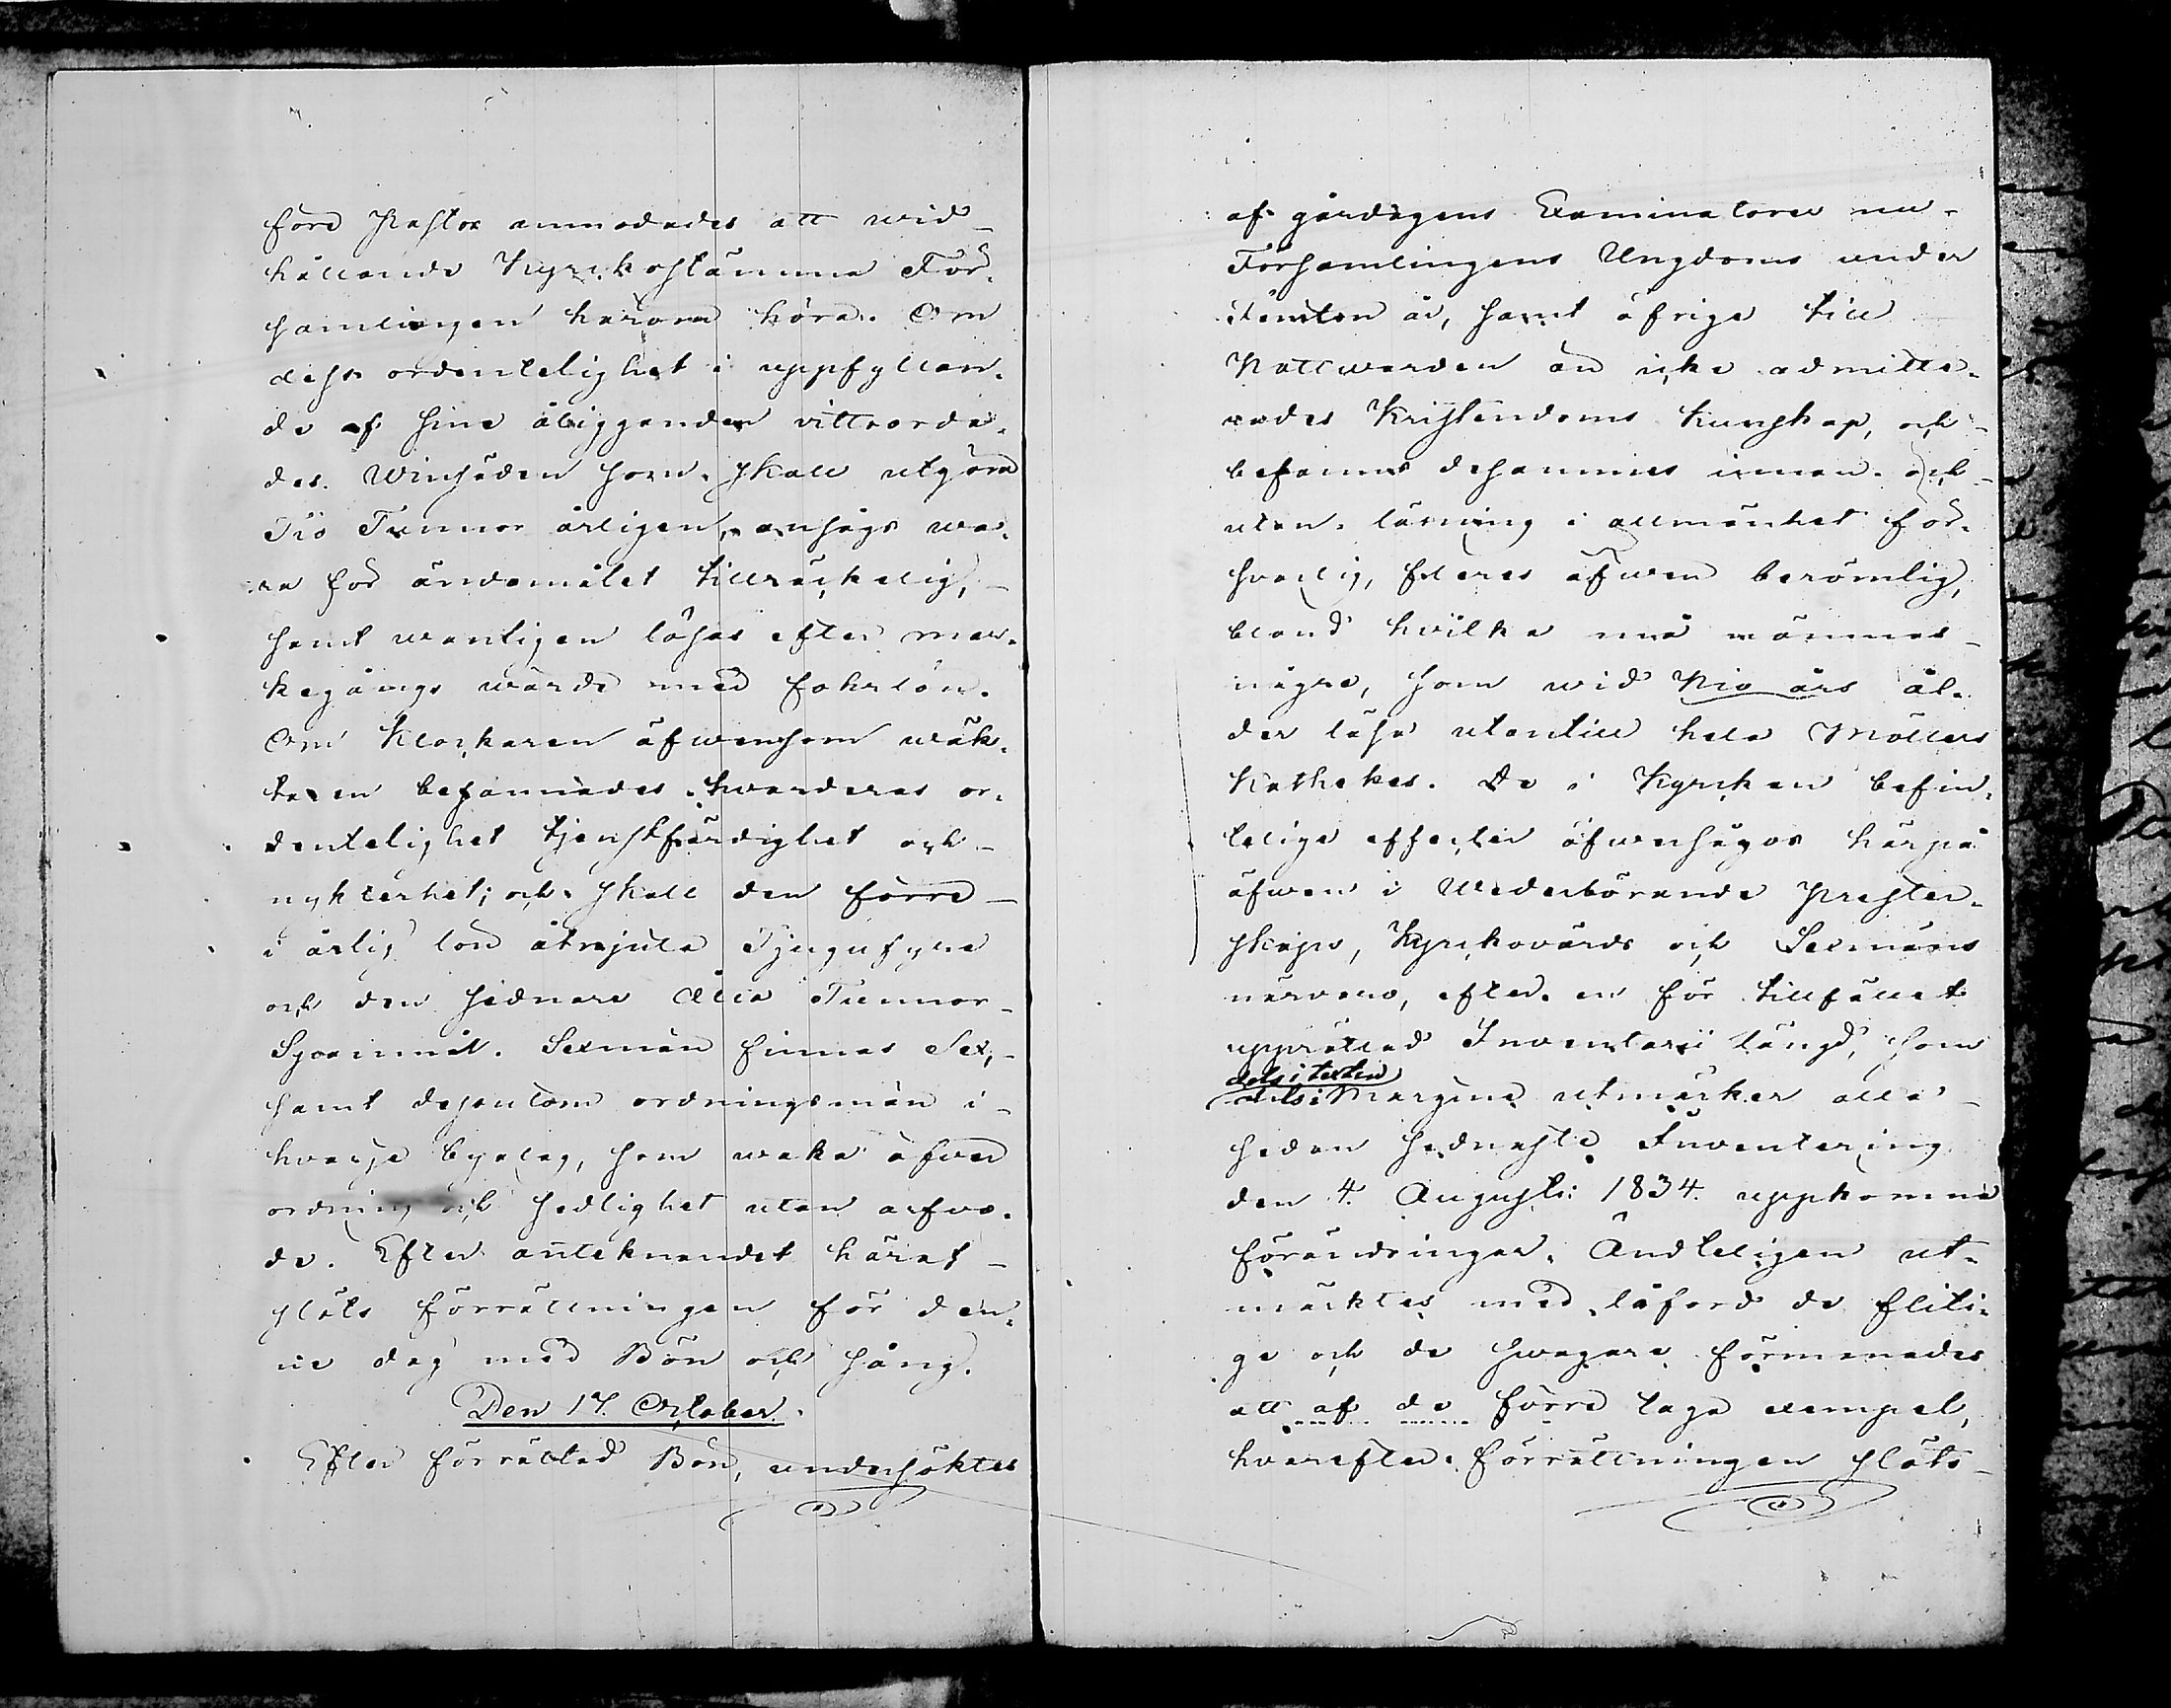 före Pastor anmodades att wid
hållande Kyrckostämma För-
samlingen härom höra. Om
dess ordentelighet i uppfyllan-
de af sine åligganden vittsorda-
des. Winsäden som skall utgöra
Tio Tunnor årligen, ansågs wa-
ra för ändamålet tillräckelig,
samt wanligen lösas efter mar-
kegångs wärde med forlön.
Om Klockaren äfwensom wäk-
taren befannades hvarderas or-
dentelighet tjenstfärdighet och
nykterhet; och skall den förre
i årlig lön åtnjuta Tjugufyra
och den sednare Åtta Tunnor
Spanmål. Sexmän finnas Sex,
samt dessutom ordningsmän i
hvarje byalag, som waka öfwer
ordning och sedlighet utan arfwo-
de. Efter anteknandet häraf
slöts förrättningen för den-
ne dag med Bön och sång.
Den 17. October.
Efter förrättad Bön, undersöktes
af gårdagens Examinatorer nu
Församlingens Ungdoms under
femton år, samt öfrige till
Nattwarden än icke admitte-
rades Kristendoms Kunskap, och
befanns desammas innan- och
utan- läsning i allmänhet för-
svarlig, fleres äfwen berömlig,
bland hvilka må nämnas
några, som wid Nio års ål-
der läsa utantill hela Möllers
Kathekes. De i Kyrckan befin-
telige effecter öfwersågos härpå
äfwen i Wederbörande Prester-
skaps, Kyrckovärds och Sexmäns
närvaro, efter en för tillfället
upprättad Inventarii längd, som
dels i texten
dels i Margine utmärker alla
sedan sednaste Inventering
den 4. Augusti 1834. uppkomna
förändringar. Ändteligen ut-
märktes med låford de fliti-
ge och de swagare förmanades
att af de förre taga exempel,
hvarefter förrättningen slöts